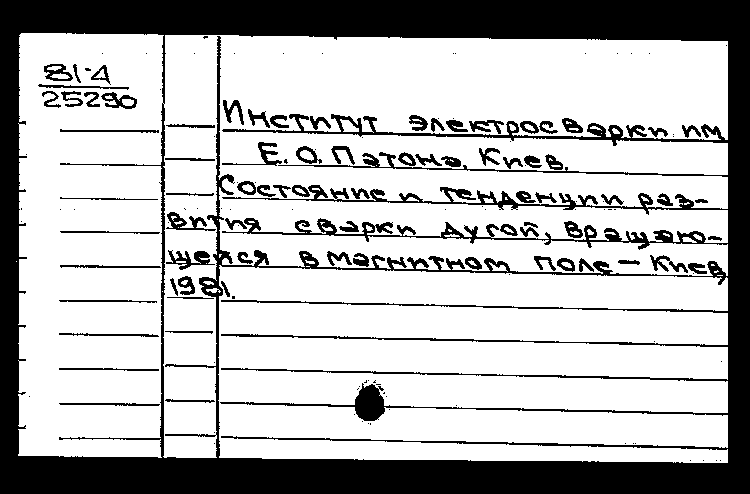 81-4
25290
Институт электросварки им
Е. О. Патона. Киев.
Состояние и тенденции раз-
вития сварки дугой, вращаю-
щейся в магнитном поле — Киев,
1981.